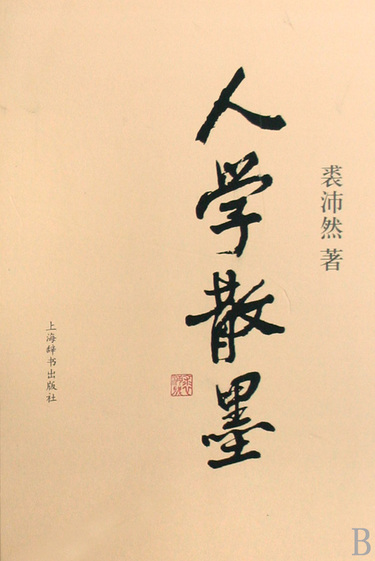 裘沛然 著
人学散墨
上海辞书出版社
B